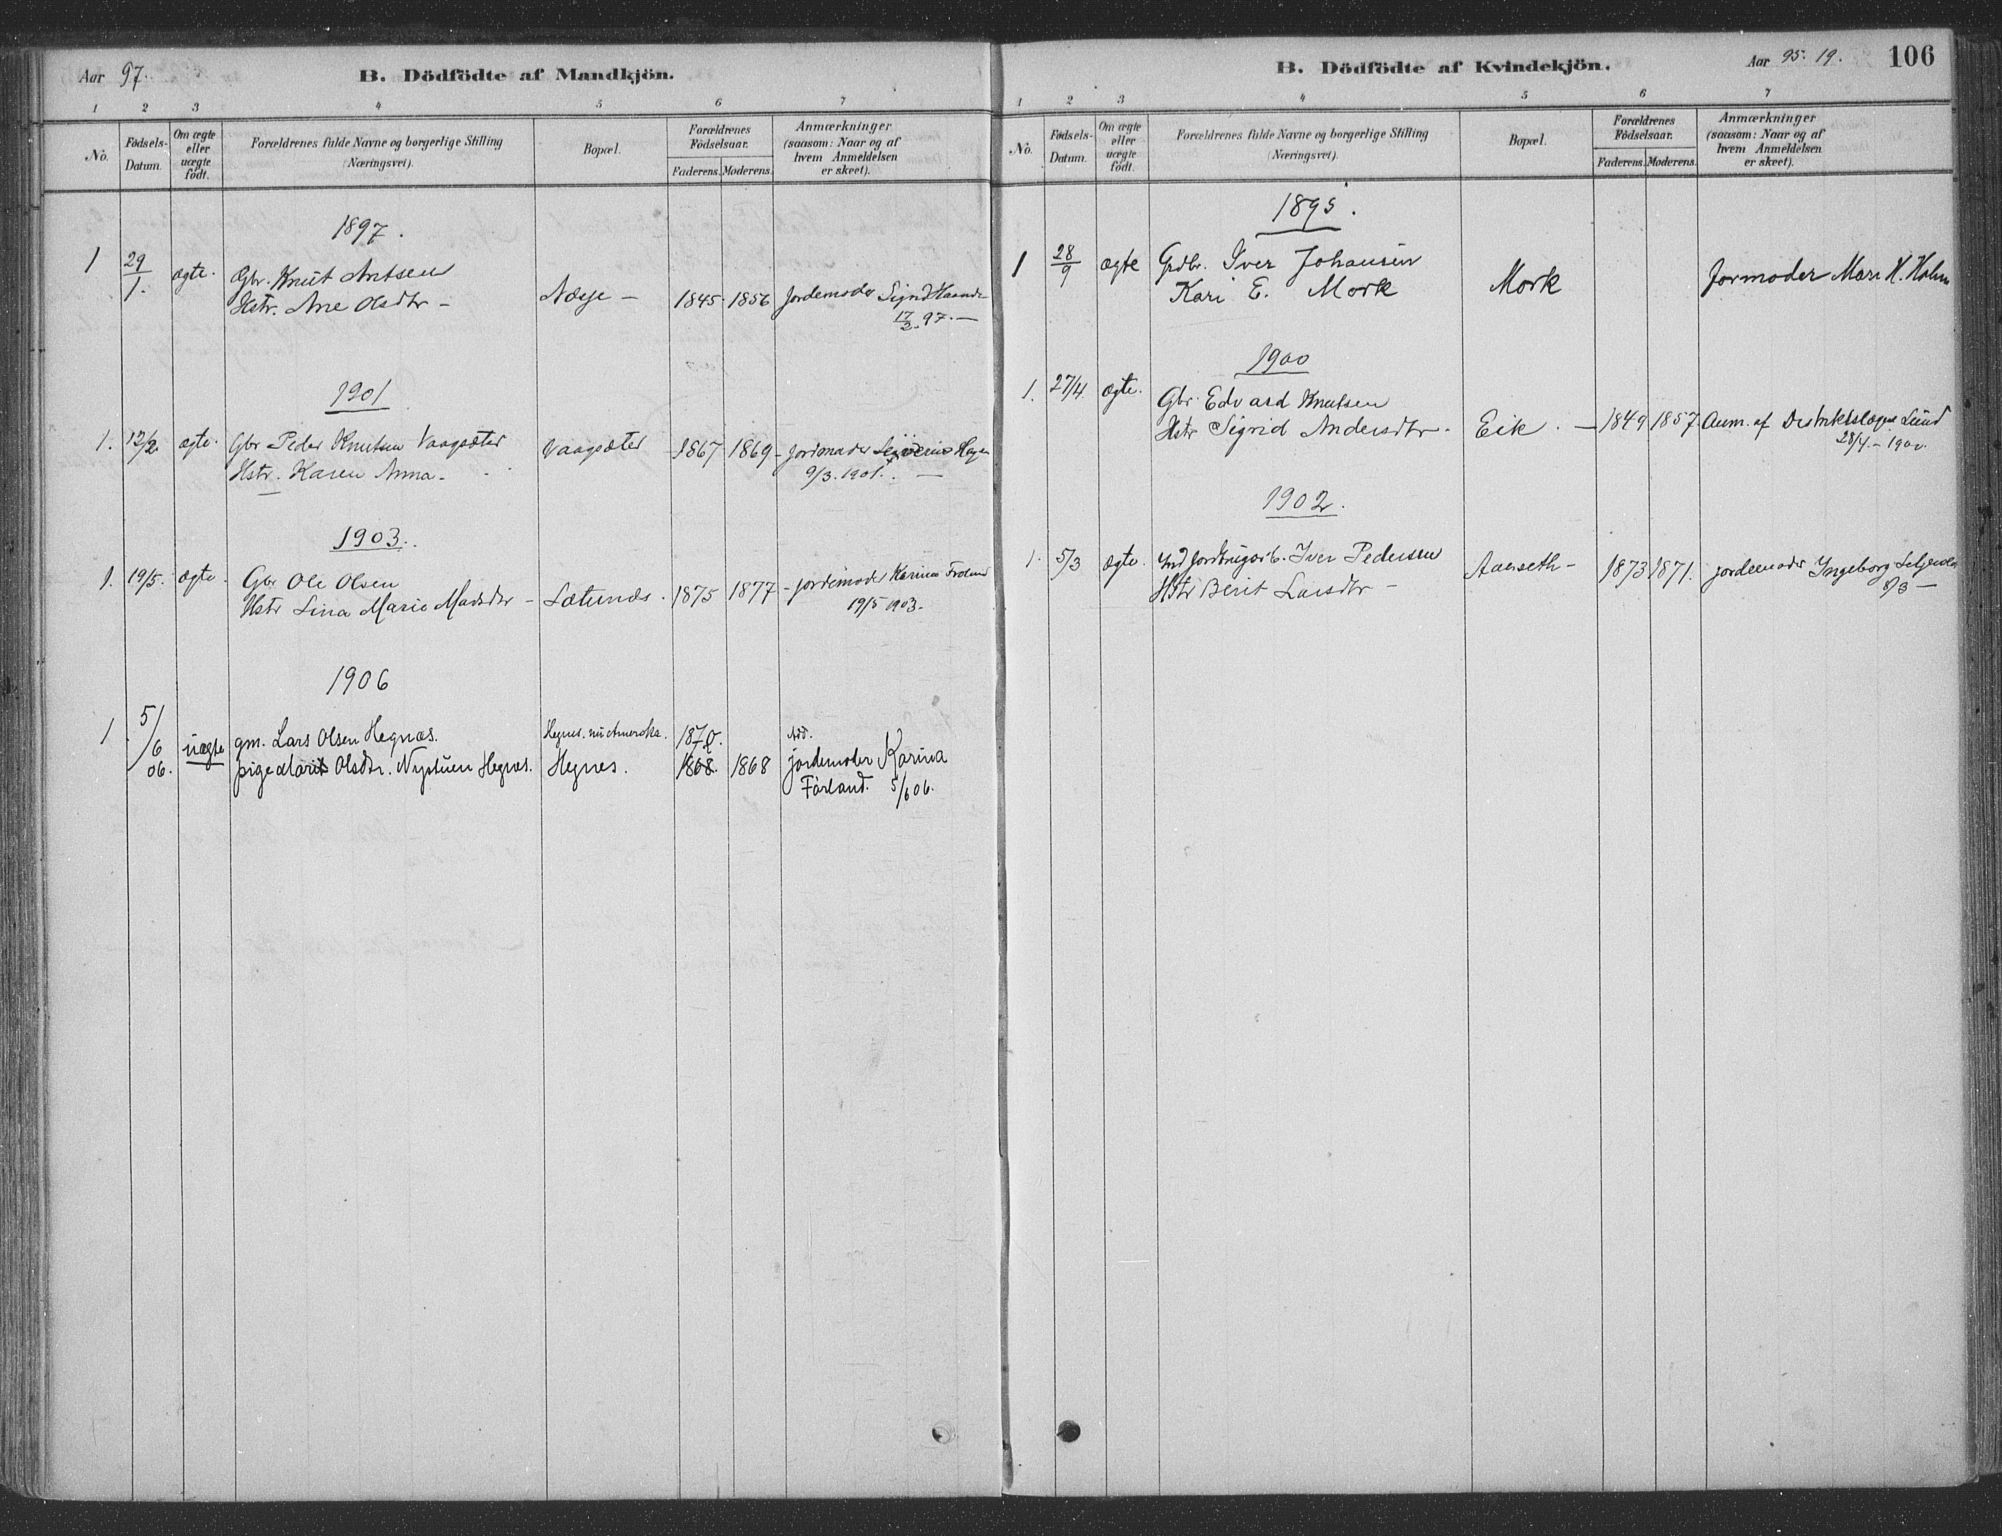 Aar 97.
B. Dödfödte af Mandkjön.
1 2 3 4 5 6 7
No.
Födsels-Datum.
Om ægte eller uægte født.
Forældrenes fulde Navne og borgerlige Stilling (Næringsvei).
Bopæl.
Forældrenes Födselsaar.
Faderens. Moderens.
Anmærkninger (saasom: Naar og af hvem Anmeldelsen er skeet).
1897.
1 29/1. ægte. Gbr. Knut Antsen
Hstr. Ane Olsdtr – Nesje – 1845 1856 Jordemoder
17/2 97. –
1901
1. 12/2 ægte. Gbr Peder Knutsen Vaagsæter
Hstr. Karen Anna. Vaagsæter 1867 1869 – Jordmoder
9/3. 1901. –
1903.
1. 19/5. ægte. Gbr Ole Olsen
Hstr Lina Marie Madsdtr – 1875 1877 – Jordemoder Karina
19/5 1903.
1906
1 5/6 06. uægte gm. Lars Olsen Hegnæs. Hegnes. nu Amerika. 1870. Add.
pige Marit Olsdtr. Nystuen Hegnes. Hegnes. 1868. 1868 jordemoder Karina
Förland. 5/6 06.
B. Dödfödte af Kvindekjön.
Aar 95. 19. 106
1 2 3 4 5 6 7
No.
Födsels-Datum.
Om ægte eller uægte födt.
Forældrenes fulde Navne og borgerlige Stilling (Næringsvei).
Bopæl.
Forældrenes Födselsaar.
Faderens. Moderens.
Anmærkninger (saasom: Naar og af hvem Anmeldelsen er skeet).
1895.
1 28/9 ægte Grdbr. Iver Johansen
Kari E. Mork Mork Jormoder Mari H. Holm
1900
1. 27/4 ægte. Gbr. Edvard Knutsen
Hstr Sigrid Andersdtr. Eik. – 1849 1857. Anm. af Distriktslæge Lund
28/4 – 1900.
1902.
1. 5/3 ægte. Ind Iver Pedersen
Hstr Berit Larsdtr – Aarseth – 1873 1871. jordemoder Ingeborg
8/3 –